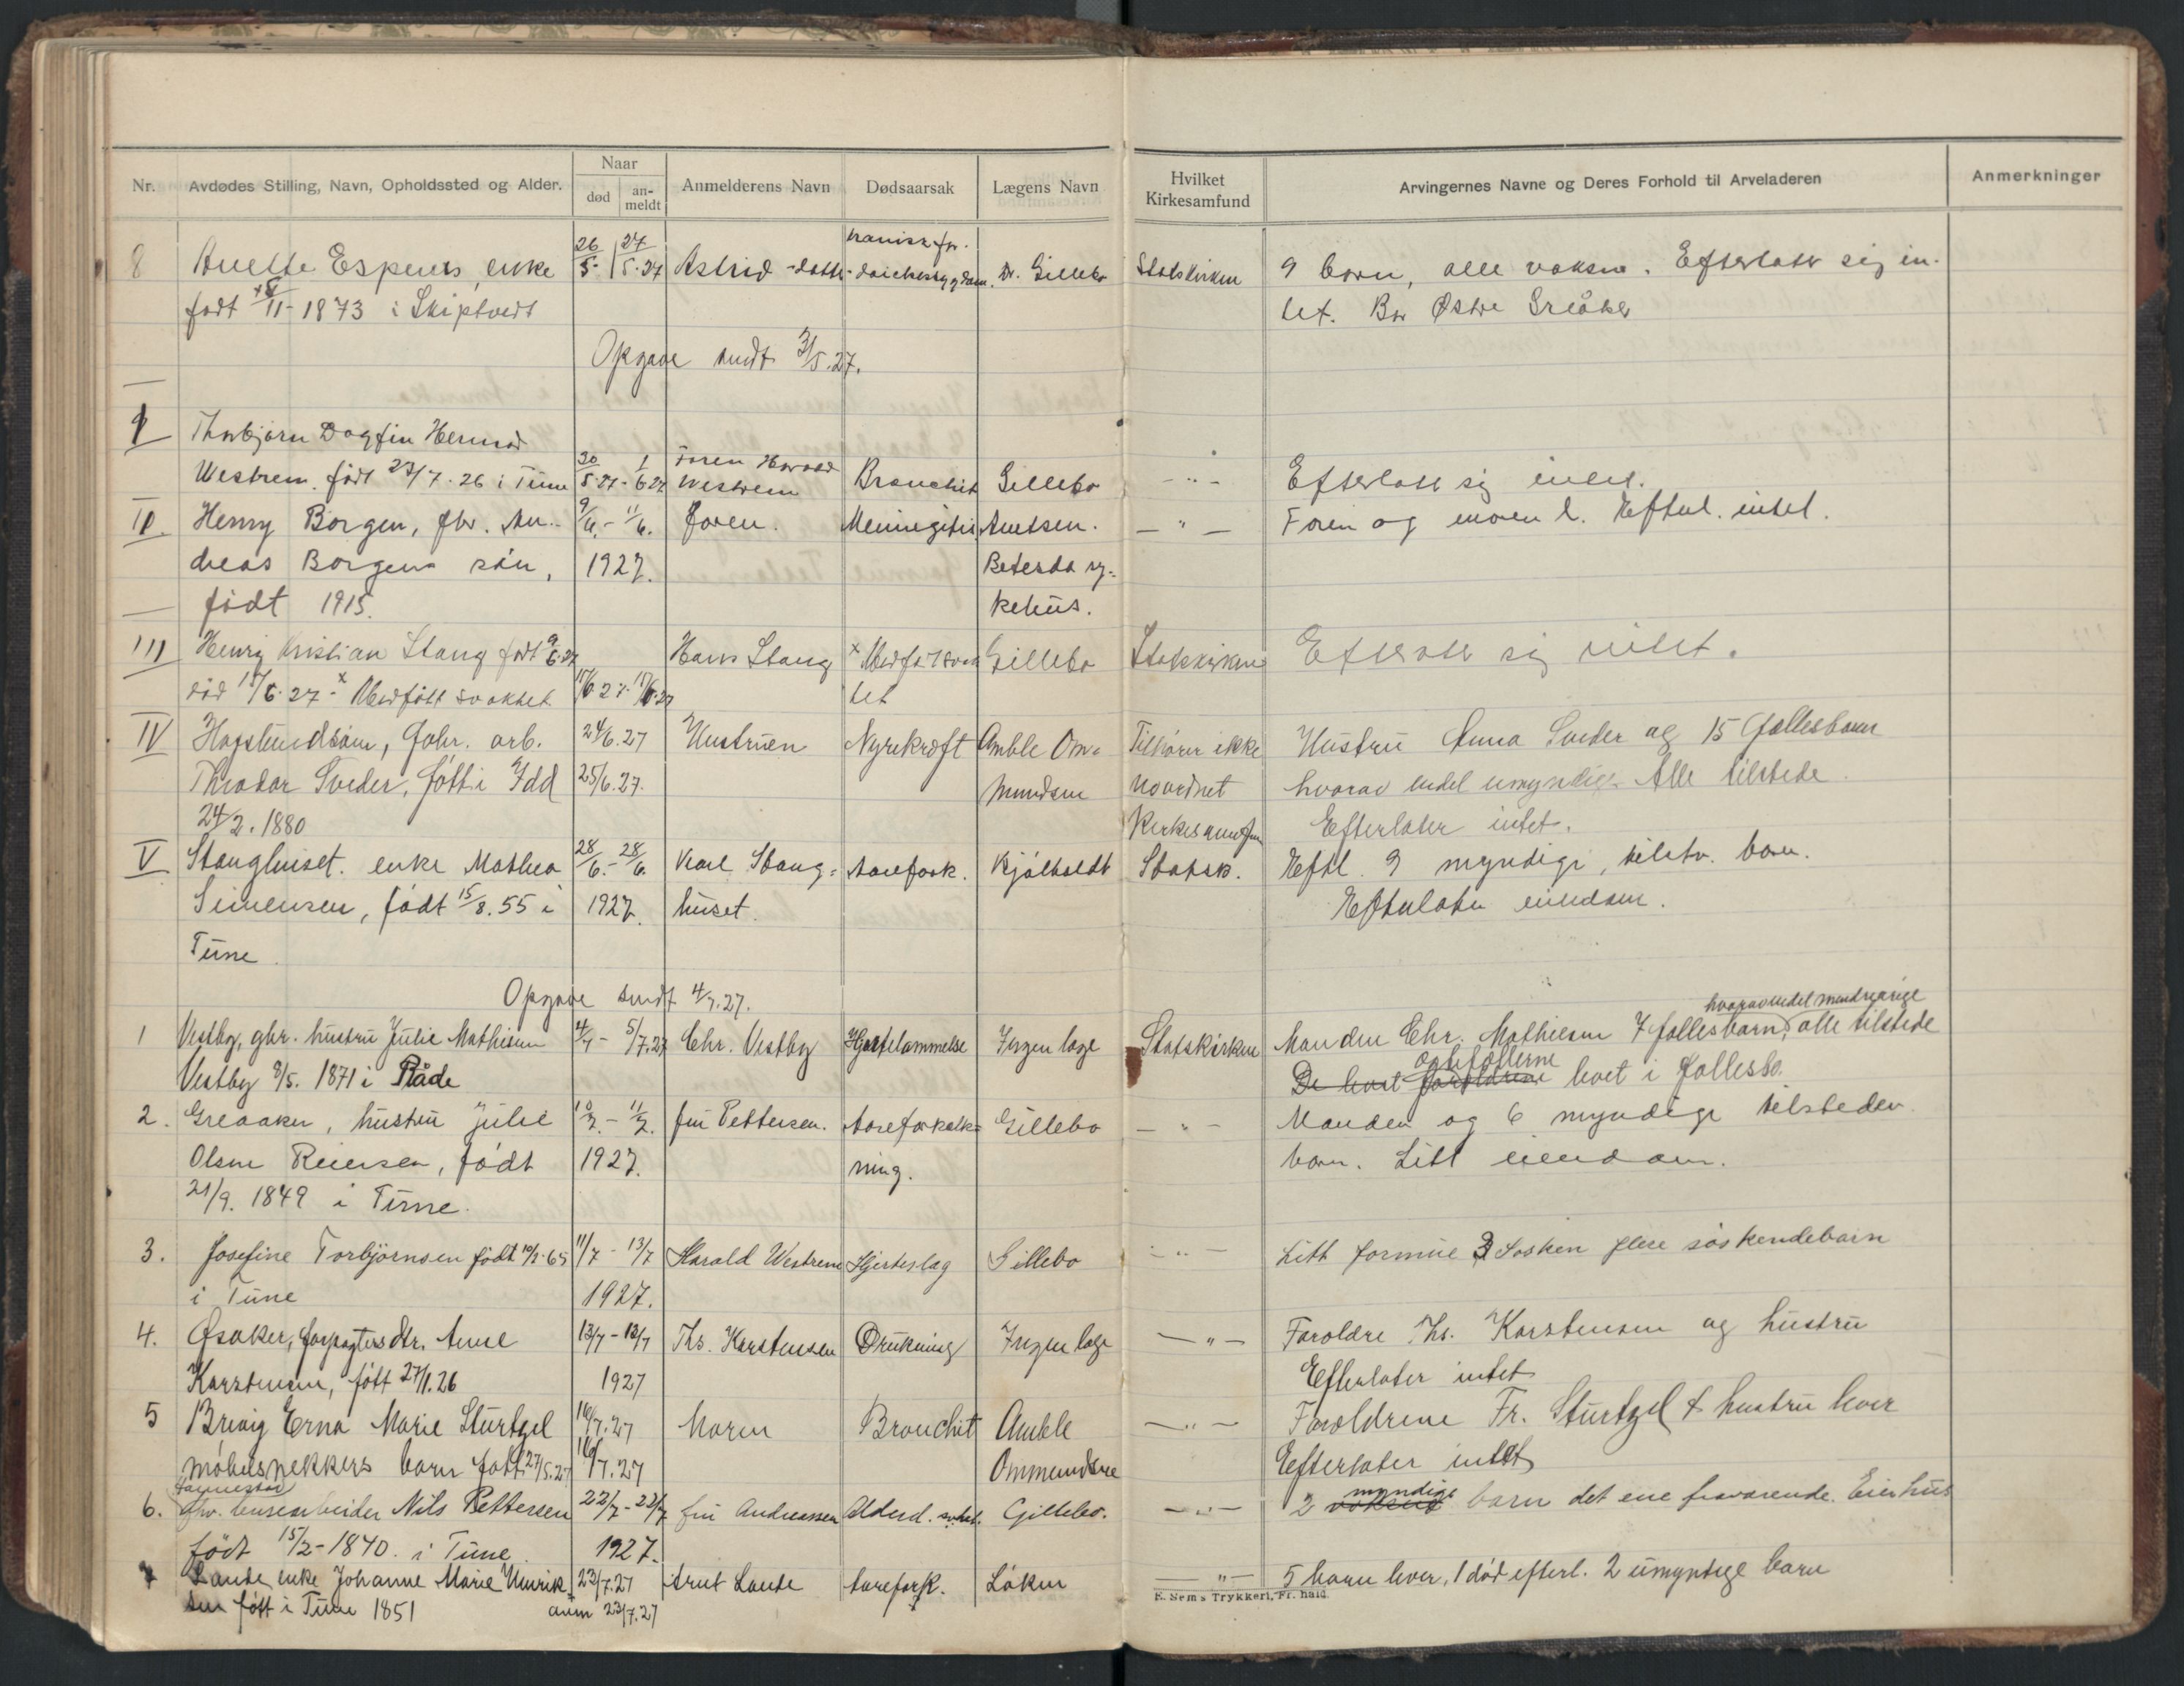 Nr. Avdødes Stilling, Navn, Opholdssted og Alder. Naar død an-meldt Anmelderens Navn Dødsaarsak Lægens Navn Hvilket Kirkesamfund Arvingernes Navne og Deres Forhold til Arveladeren Anmerkninger
8 Anette Espenes, enke 26/5- 27/5-27 Astrid -dotter- Dr. Gillebo Statskirken 9 born, alle voksne. Efterlater sig in-
født 11-1873 i Skiptvedt tet. Bor Østre Greåker
Opgave sendt 3/5.27.
Thorbjørn Dagfin Hermod
Westrem, født 23/7.26 i Tune 30/5.27-1/6 27 Faren Harald Westrem Bronchit Gillebo -"- Efterlater sig intet.
II Henry Borgen, fbr. An- 9/6.-11/6. faren. Meningitis Arntsen. -"- Faren og moren l. Efterl. intet.
dreas Borgens søn, 1927. Betesda sy-
født 1915. kehus.
III Henry Kristian Stang født 9/6.27 Hans Stang x Medfødt svak Gillebo Statskirken Efterlater sig intet.
død 15/6.27 - x Medfødt svakhet 15/6.27-15/6.27 het
IV Hafslundsøen, fabr. arb. 24/6.27 Hustruen Nyrekræft Amble Om- Tilhører ikke Hustru Anna Sveder og 15 fællesbarn
Theodor Sveder, født i Idd 25/6.27. mundsen noordnet hvorav endel umyndige. Alle tilstede.
24/2.1880 Kirkesamfun Efterlater intet.
V Stanghuset. enke Mathea 28/6.-28/6. Karl Stang- Aarefork. Kjølholdt Statsk. Eftl. 9 myndige, tilstv. barn.
Simensen, født 15/8.55 i 1927. huset. Efterlater eiendom.
Tune.
Opgave sendt 4/7.27.
hvorav endel mindreårige
1 Vestby, gbr. hustru Julie Mathisen 4/7 - 5/7.27 Chr. Vestby Hjertelammelse Ingen læge Statskirken Manden Chr. Mathisen 7 fællesbarn, alle tilstede
Vestby 8/5. 1871 i Råde De hvert forældrene ægtefællerne levet i fællesbo.
2. Greaaker, hustru Julie 10/7.-11/7. fru Pettersen. Aareforkalk- Gillebo -"- Manden og 6 myndige tilsteder.
Olsen Reiersen, født 1927. ning. barn. Litt eiendom.
21/9. 1849 i Tune.
3. Josefine Torbjørnsen født 10/2-65 11/7 - 13/7 Harald Westrem Hjerteslag Gillebo -"- Litt formue 3 søsken flere søskendebarn
i Tune 1927.
4. Opsaker, forpagters dtr. Anne 13/7-13/7 Ths. Karstensen Drukning Ingen læge -"- Forældre Th. Karstensen og hustru
Karstensen, født 27/1.26 1927 Efterlater intet
5 Breivig Erna Marie Sturtzel 16/7.27 Moren Bronchit Amble -"- Forældrene Fr. Sturtzel & hustru lever
møbelsnekkers barn født 27/5.27 16/7.27 Ommundsen Efterlater intet
6. fhv. brusearbeider Nils Pettersen 22/7-22/7 fru Andreassen Alderd. svakh. Gillebo. -"- 2 voksne myndige barn det ene fraværende. Eier hus
født 15/2-1840. i Tune. 1927.
7 Lande, enke Johanne Marie Henrik- 23/7.27 Arnt Lande Aarefork. Løken -"- 5 barn lever, 1 død efterl. 2 umyndige barn
sen født i Tune 1851 anm 23/7.27
E. Sem's Trykkeri, Fr.hald.